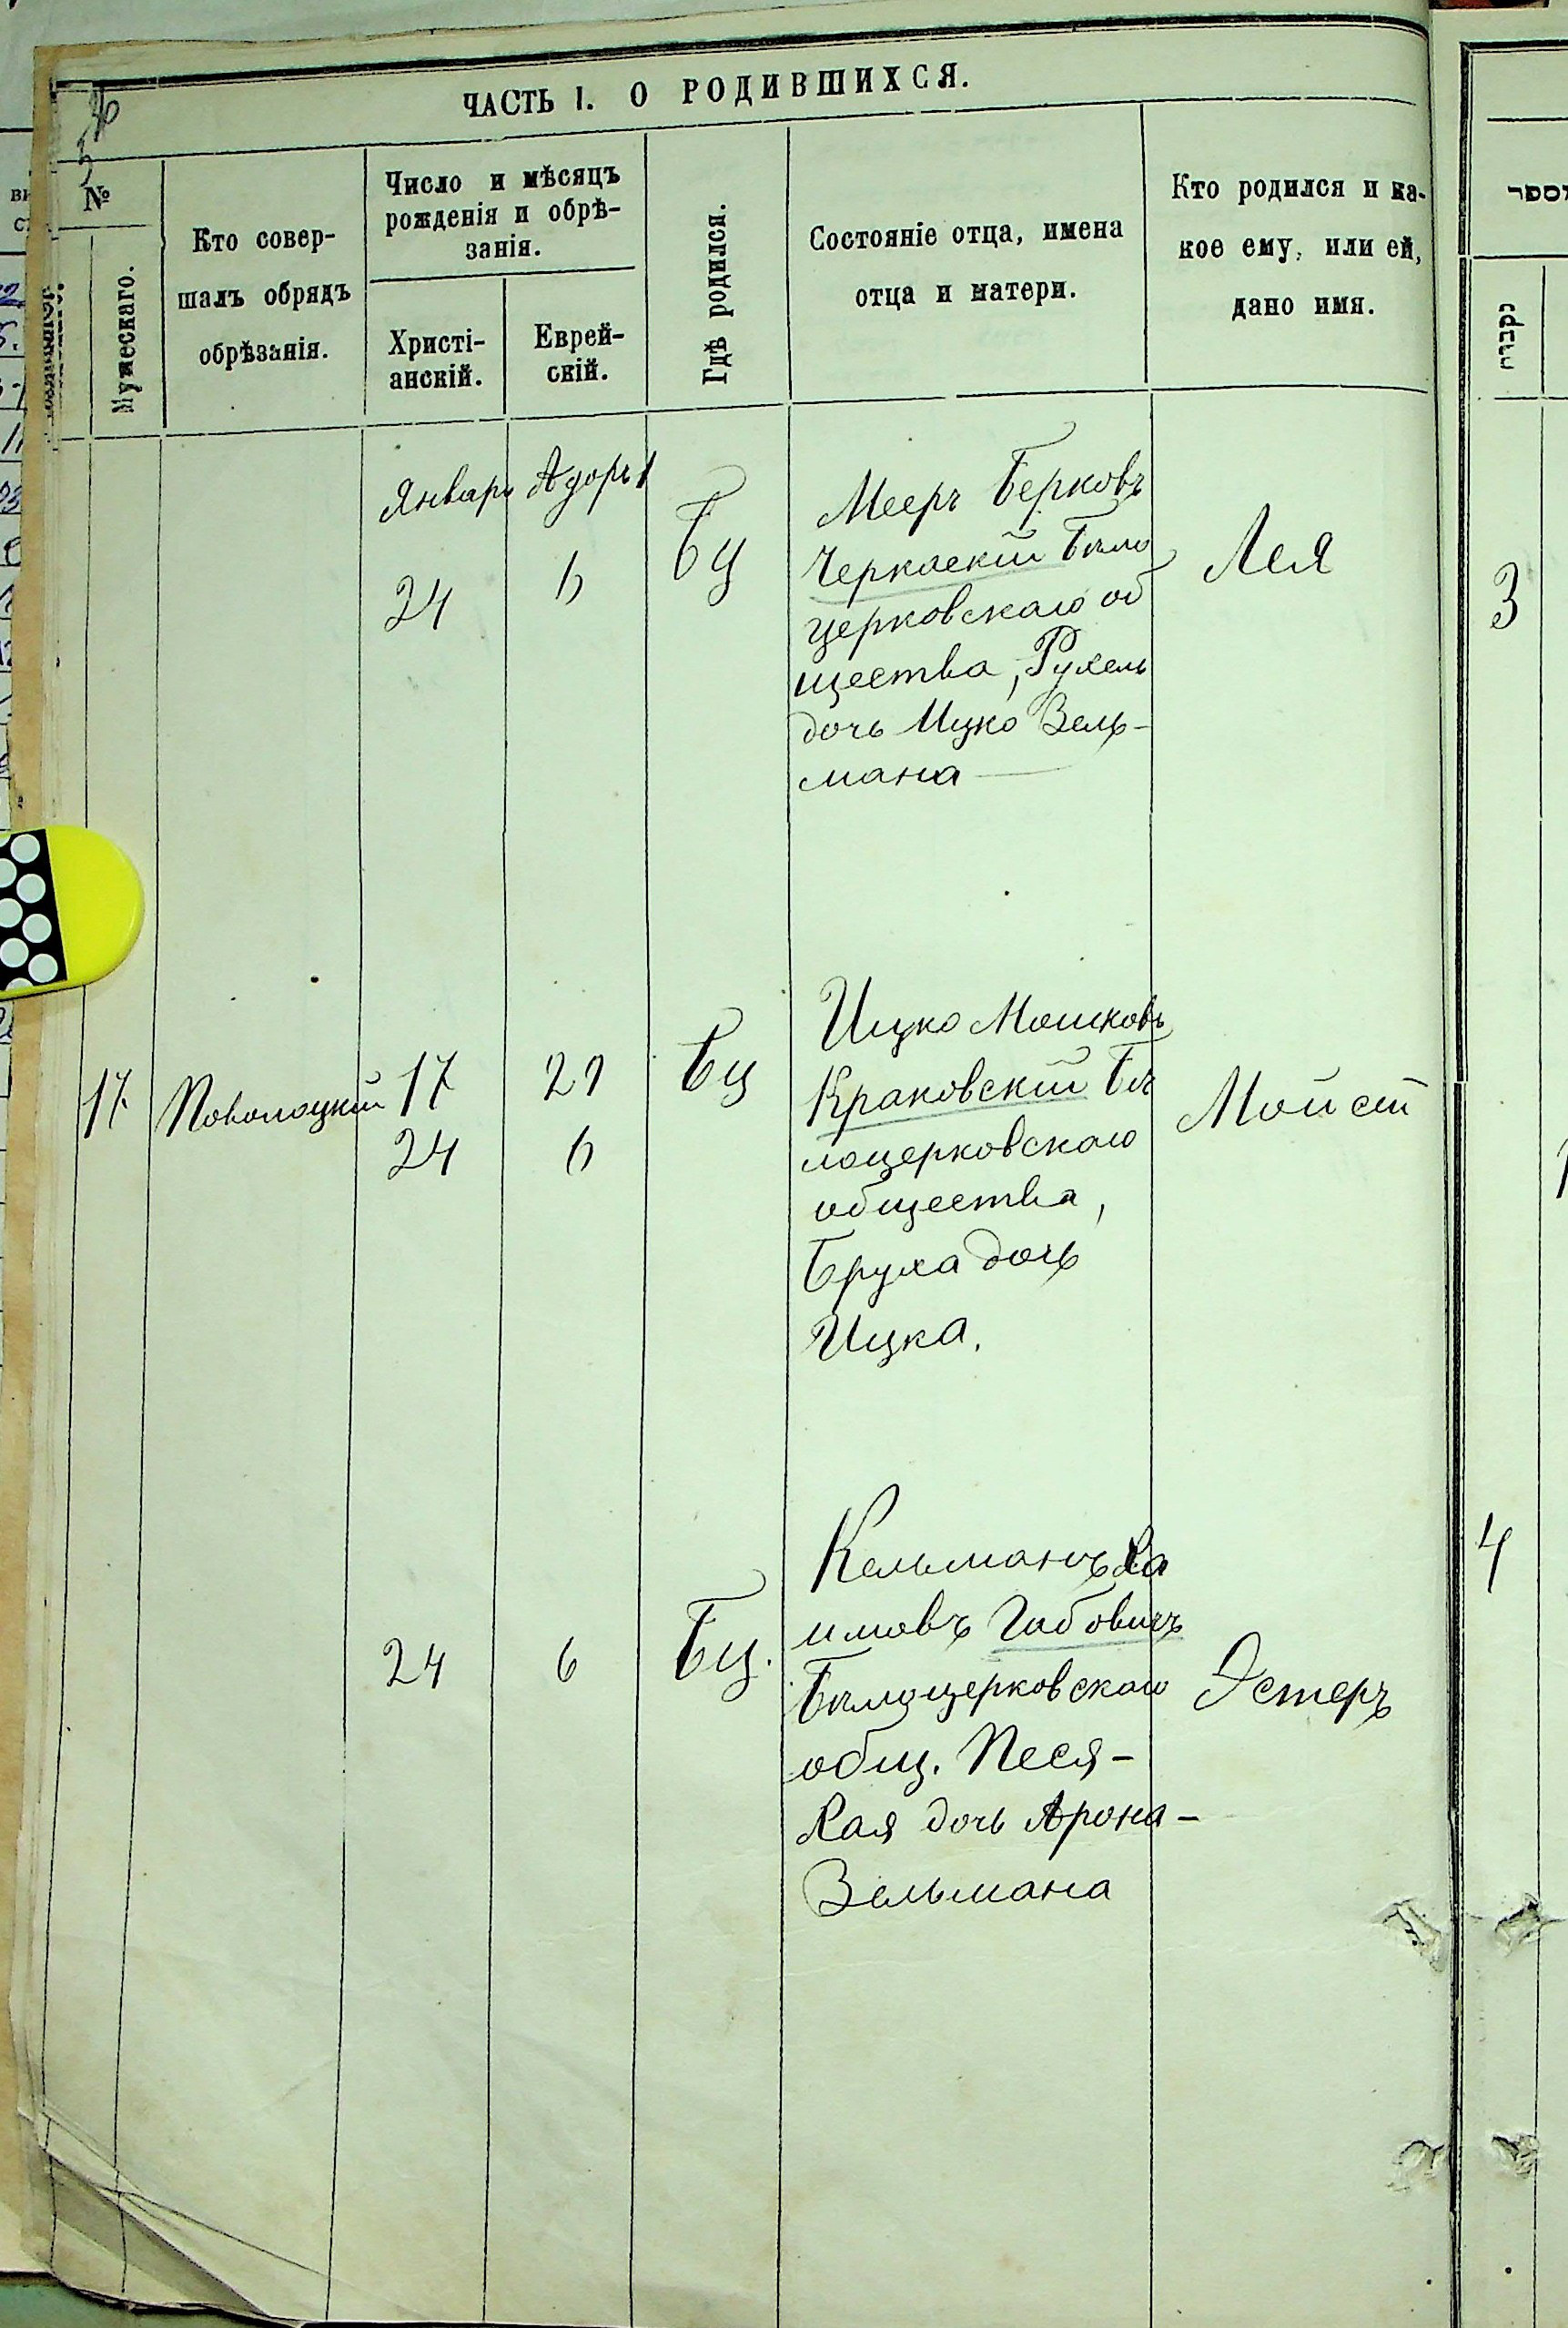 ЧАСТЬ I. О РОДИВШИХСЯ.
№
Мужескаго.
Кто совер-
шалъ обрядъ
обрѣзанія.
Число и мѣсяцъ
рожденія и обрѣ-
занія.
Христі-
анскій.
Еврей-
скій.
Гдѣ родился.
Состояніе отца, имена
отца и матери.
Кто родился и ка-
кое ему, или ей,
дано имя.
Январь Адоръ 1
24 6 Бц
Мееръ Берковъ
Черкаскій Бѣло
церковскаго об
щества, Рухель
дочь Ицко Зель-
мана
Лея
17 Поволоцкій 17 29 Бц
24 6
Ицко Мошковъ
Краковскій Бѣ
лоцерковскаго
общества,
Бруха дочь
Ицка.
Мойсей
24 6 Бц.
Кельманъ Ха
имовъ Габовичъ
Бѣлоцерковскаго
общ. Песя-
Хая дочь Арона-
Зельмана
Эстеръ
נקבות
3
4